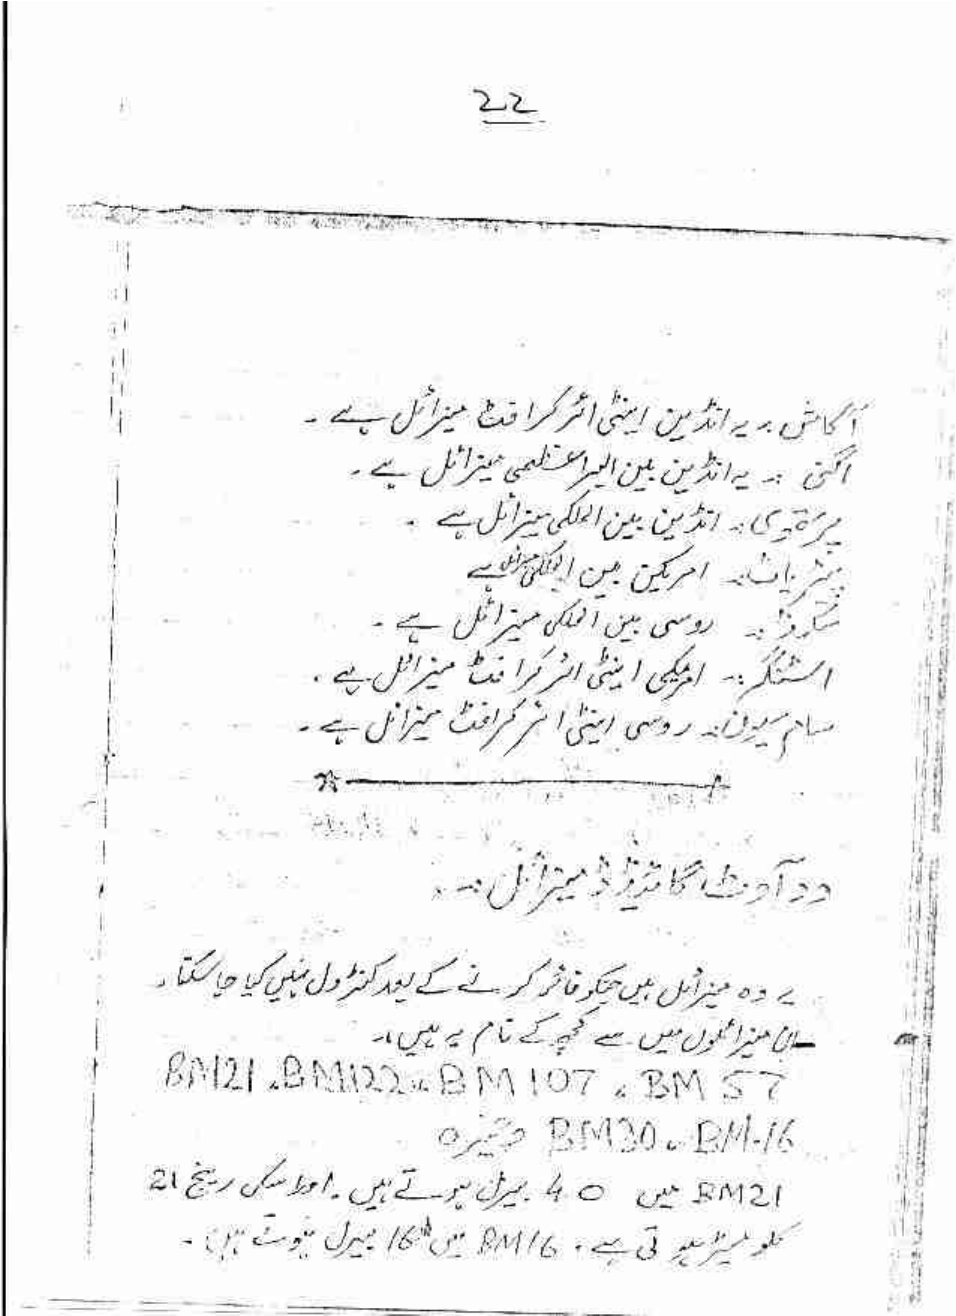 22
آکاش :۔ یہ انڈین اینٹی ائر کرافٹ میزائل ہے ۔
اگنی :۔ یہ انڈین بین البراعظمی میزائل ہے ۔
پرتھوی :۔ انڈین بین الملکی میزائل ہے ۔
پیٹریاٹ :۔ امریکن بین الملکی میزائل ہے
سکڈ :۔ روسی بین الملکی میزائل ہے ۔
اسٹنگر :۔ امریکی اینٹی ائر کرافٹ میزائل ہے ۔
سام سیون :۔ روسی اینٹی ائر کرافٹ میزائل ہے ۔
آوٹ گائیڈڈ میزائل :۔
یہ وہ میزائل ہیں جنکو فائر کرنے کے بعد کنٹرول نہیں کیا جا سکتا ۔
ان میزائلوں میں سے کچھ کے نام یہ ہیں :۔
BM 57 ، BM 107 ، BM122 ، BM21
BM-16 ، BM30 وغیرہ
BM21 میں 40 بیرل ہوتے ہیں ۔ اور اسکی رینج 21
کلو میٹر ہوتی ہے ۔ BM16 میں 16 بیرل ہوتے ہیں ۔